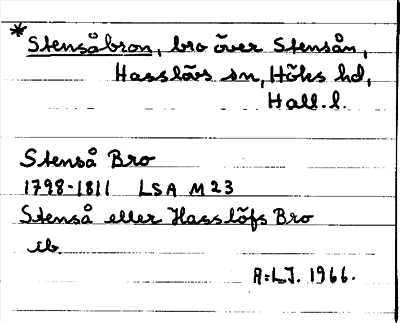 *Stensåbron, bro över Stensån,
Hasslövs sn, Höks hd,
Hall. l.
Stenså Bro
1798-1811 LSA M23
Stenså eller Hasslöfs Bro
ib.
A:LJ. 1966.